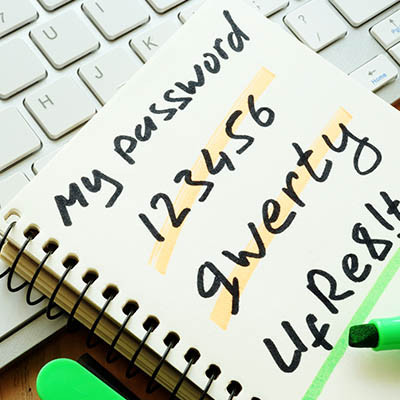 My password
123456
qwerty
U
J
H